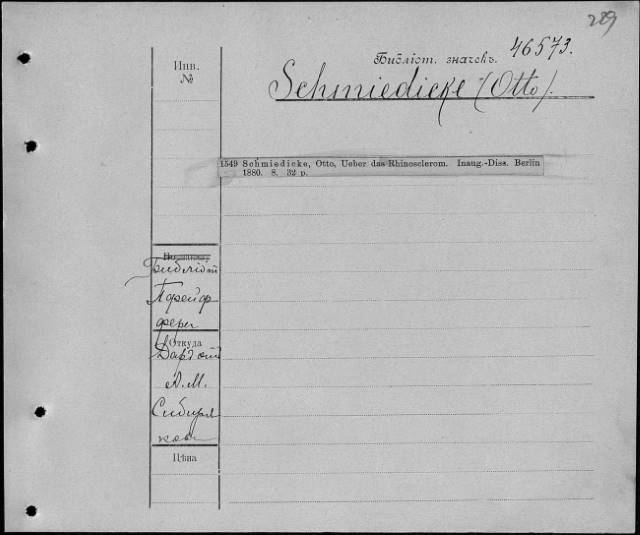 289
Инв.
№
Бібліот. значекъ. 46573.
Schmiedicke (Otto).
1549 Schmiedicke, Otto, Ueber das Rhinosclerom. Inaug.-Diss. Berlin
1880. 8. 32 p.
Библіот
Пфейф
фера
Откуда
Даръ
А. М.
Сибиря
кова
Цѣна